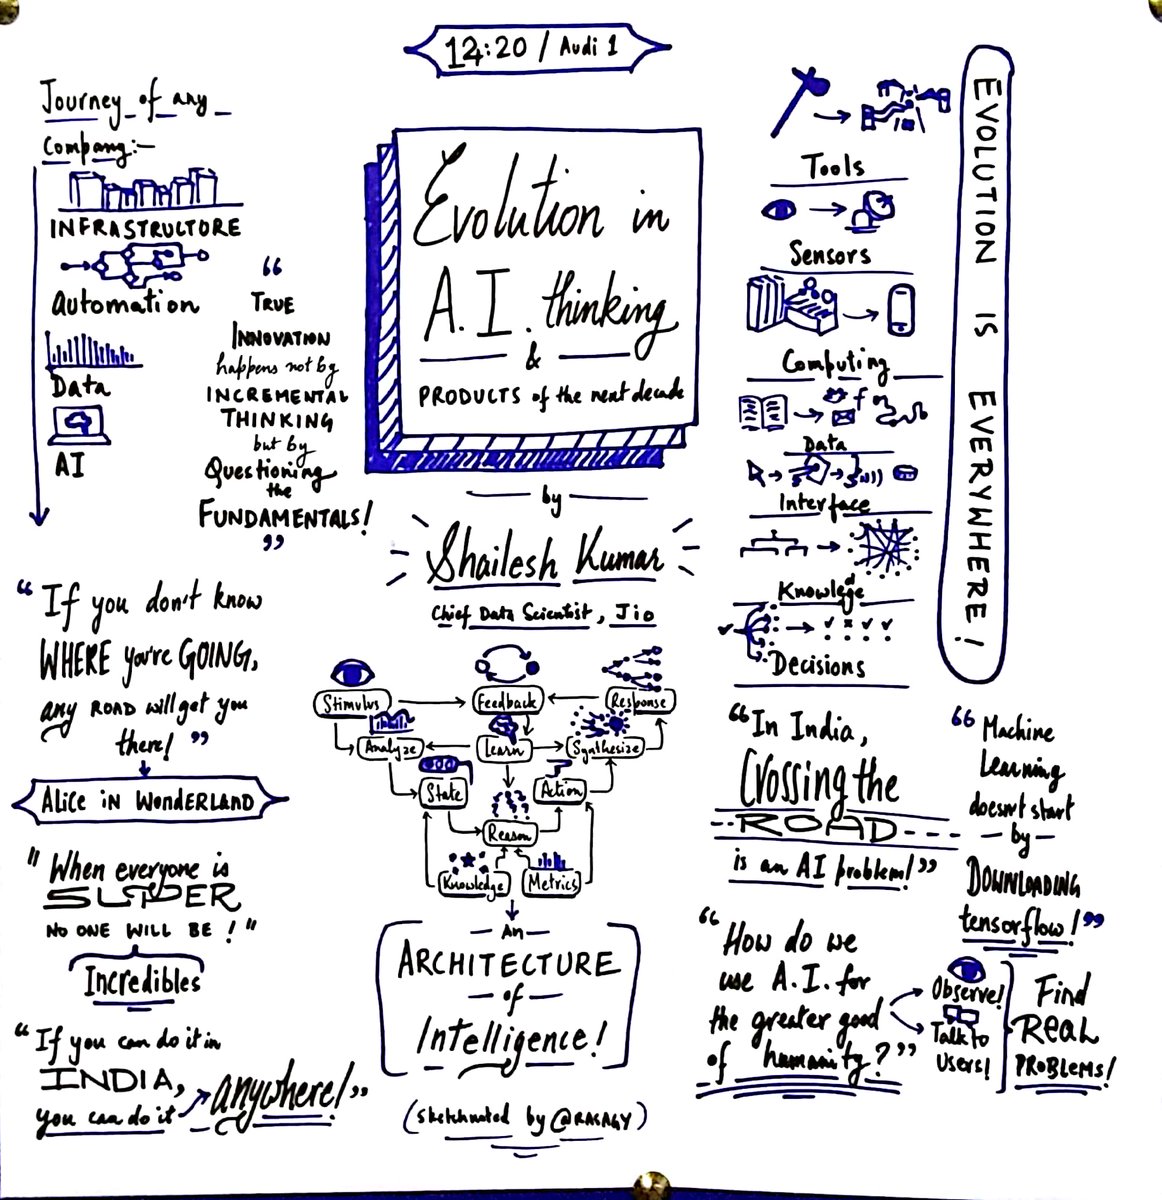 12:20 / Audi 1
Journey of any
Company:-
INFRASTRUCTORE
Automation
Data
AI
"
TRUE
INNOVATION
happens not by
INCREMENTAL
THINKING
but by
Questioning
the
FUNDAMENTALS!
"
Evolution in
A.I. thinking
&
PRODUCTS of the next decade
by
Shailesh Kumar
Chief Data Scientist, Jio
Tools
Sensors
Computing
Data
Interface
Knowledge
Decisions
EVOLUTION IS EVERYWHERE!
"If you don't know
WHERE you're GOING,
any ROAD will get you
there!"
ALICE IN WONDERLAND
"When everyone is
SUPER
NO ONE WILL BE!"
Incredibles
"If you can do it in
INDIA,
you can do it anywhere!"
Stimulus
Feedback
Response
Analyze
Learn
Synthesize
State
Action
Reason
Knowledge
Metrics
- An -
ARCHITECTURE
- of -
Intelligence!
(sketchnoted by @RASAGY)
"In India,
Crossing the
ROAD
is an AI problem!"
"Machine
Learning
doesn't start
- by -
DOWNLOADING
tensorflow!"
"How do we
use A.I. for
the greater good
of humanity?"
Observe!
Talk to
Users!
Find
REAL
PROBLEMS!